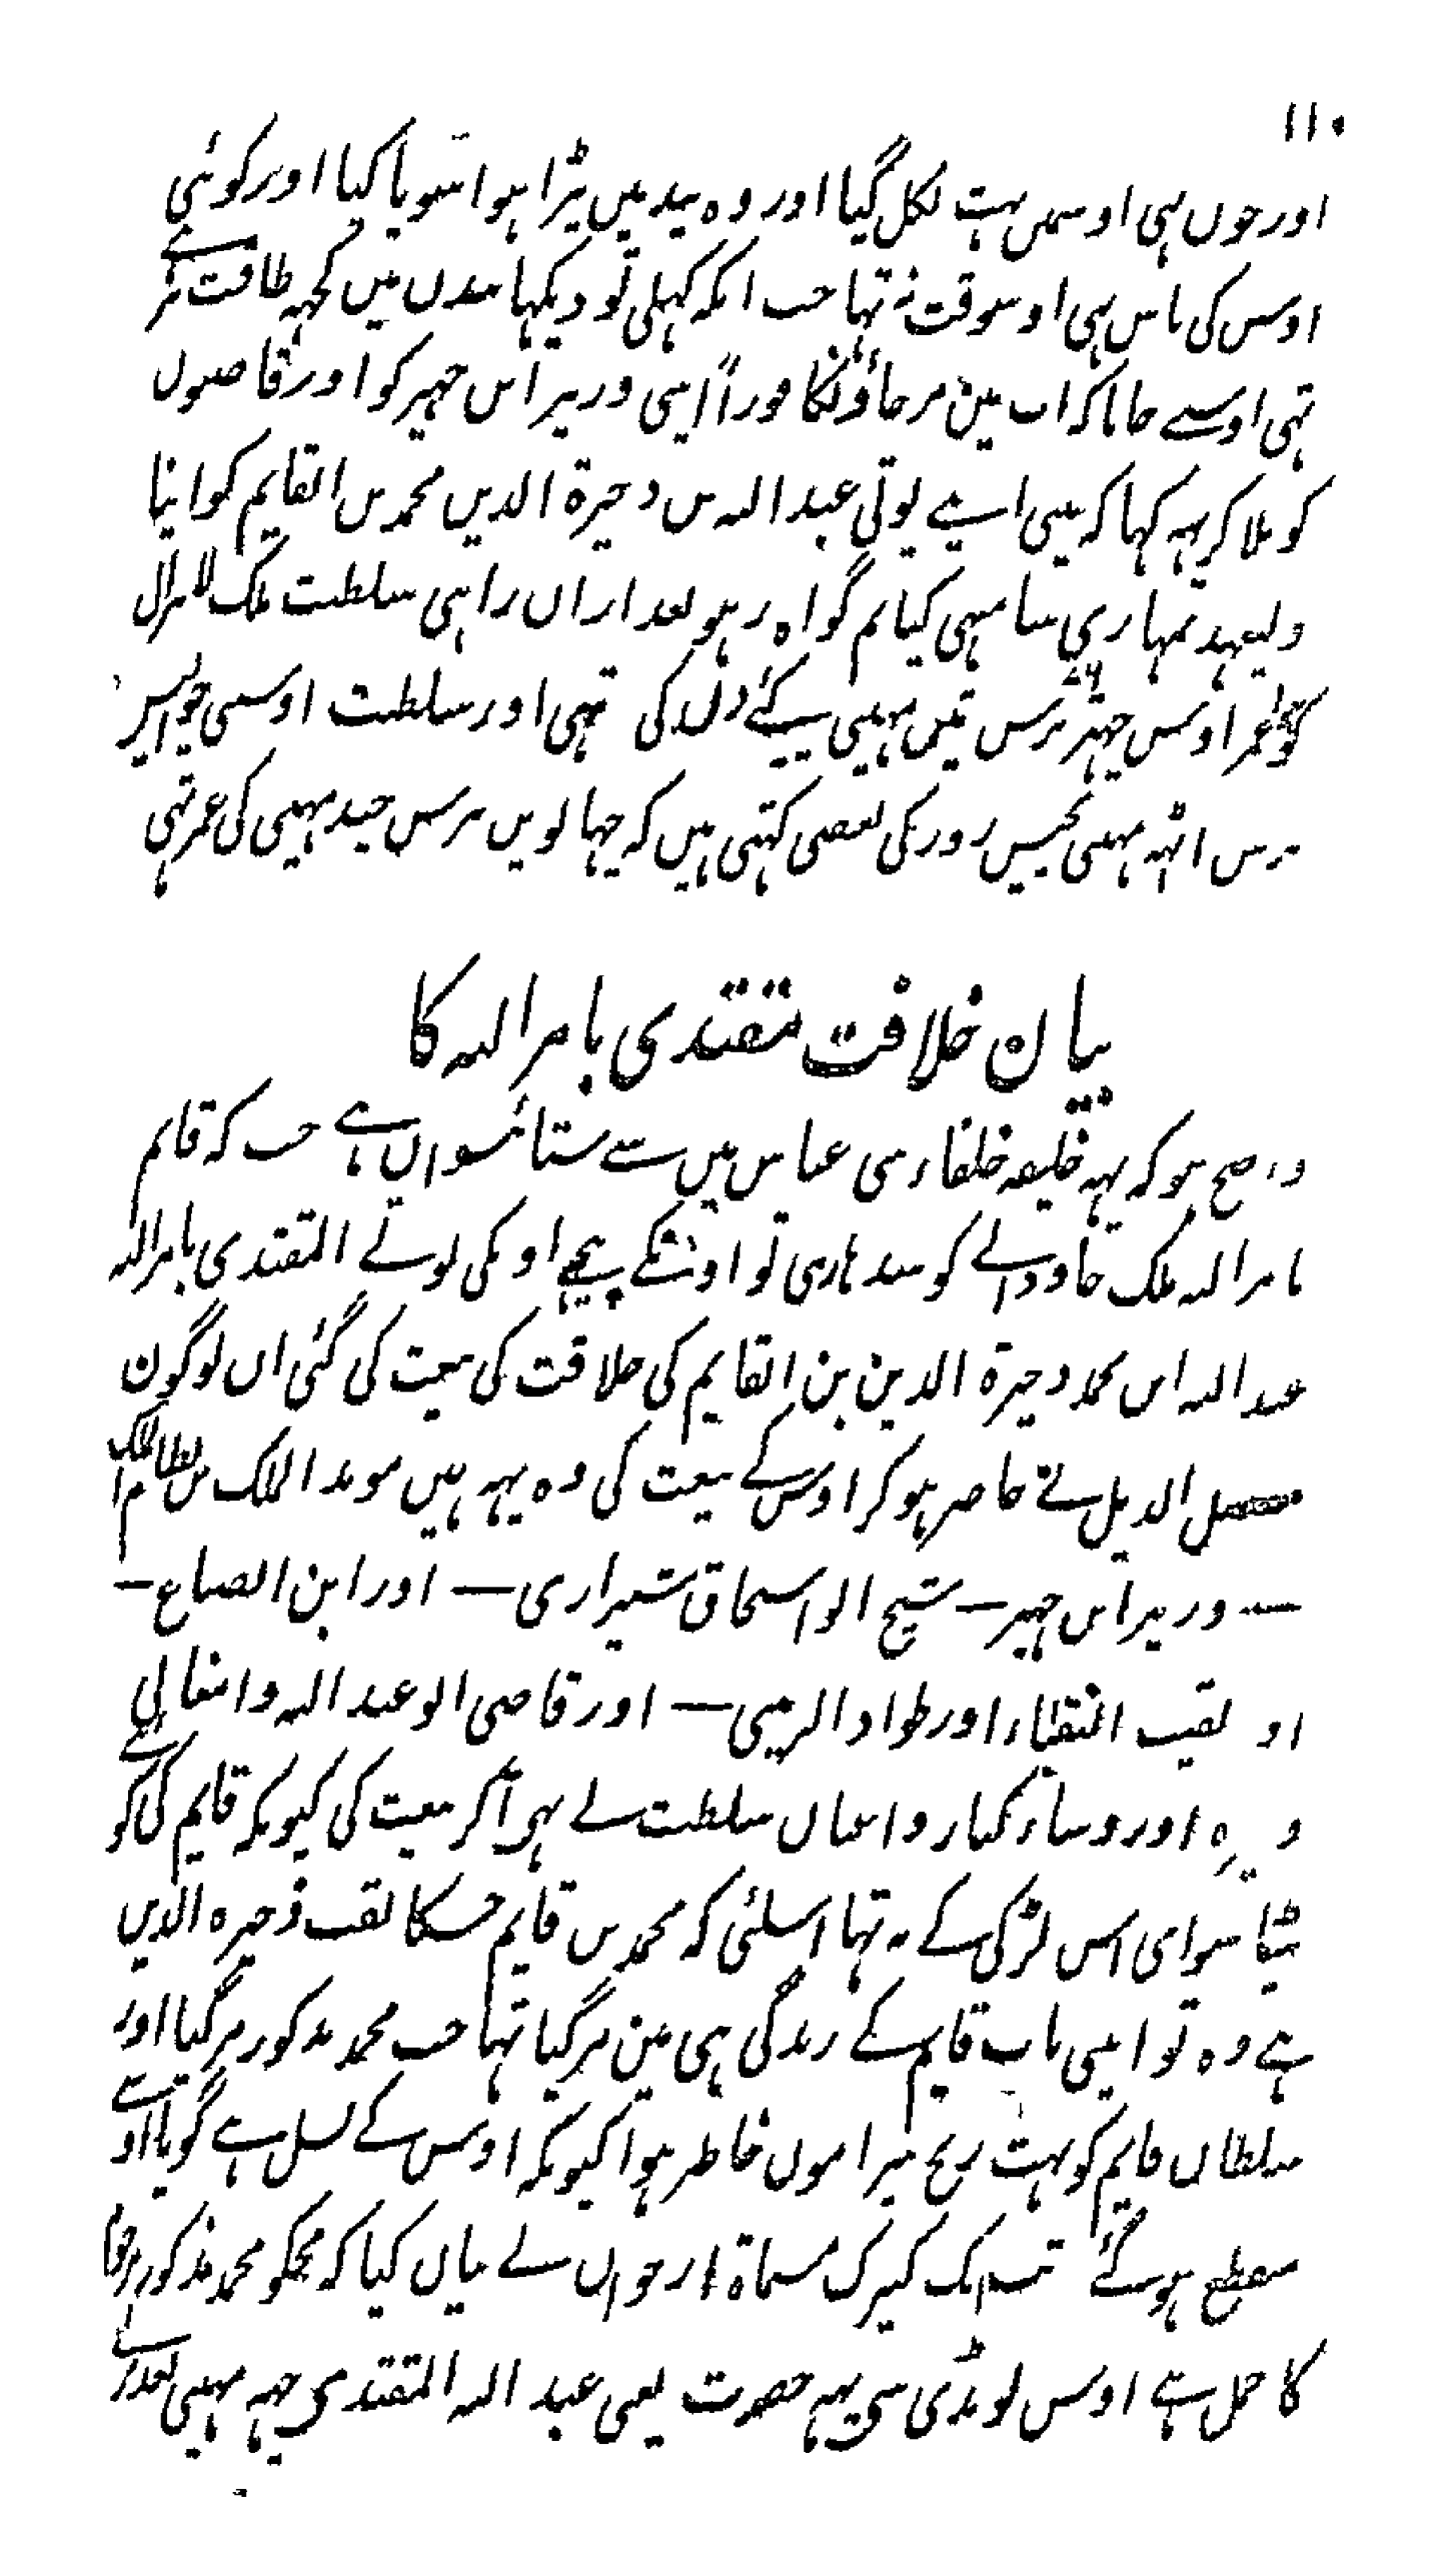 ۱۱۰
اور جوں ہی اوسمیں بہت نکل گیا اور وہ نیند میں پڑا ہوا سوتا کیا اور کوئی
اوس کی پاس ہی اوسوقت نہ تھا جب انکہہ کہلی تو دیکہا بدن میں کچہہ طاقت نہ
تہی اوسے جانا کہ اب مین مر جاؤنگا فوراً اپنی وزیر ابن جہیر کو اور قاضیوں
کو بلا کر یہہ کہا کہ میں اپنے پوتی عبد اللہ بن ذخیرة الدین محمد بن القایم کو اپنا
ولیعہد تمہاری سامہی کیا تم گواہ رہو بعد ازاں راہی سلطنت ملک لا یزال
عمر اوس چہتر برس تین مہینی کے دن کی تہی اور سلطنت اوسی
برس اٹہہ مہینی پچیس روز کی بعضی کہتی ہیں کہ چہیانویں برس چند مہینی کی عمر تہی
بیان خلافت مقتدی بامر اللہ کا
واضح ہو کہ یہہ خلیفہ خلفاء بنی عباس میں سے ستائیسواں ہے جب کہ قایم
بامر اللہ ملک جاودانے کو سدہاری تو اونکے پیچے اونکی پوتے المقتدی بامر اللہ
عبد اللہ ابن محمد ذخیرة الدین بن القایم کی خلافت کی بیعت کی گئی اں لوگون
الذیل نے حاضر ہو کر اوس کے بیعت کی وہ یہہ ہیں موید الملک بن نظام الملک
— وزیر ابن جہیر — شیخ ابو اسحاق شیرازی — اور ابن الصباغ —
او نقیب النقباء اور طراد الزینبی — اور قاضی ابو عبد اللہ دامغانی
وغیرہ اور روساء کبار و اعیان سلطنت نے بہی آ کر بیعت کی کیونکہ قایم کی کوئی
بیٹا سوای اس لڑکی کے نہ تہا اسلئی کہ محمد بن قایم جسکا لقب ذخیرہ الدین
ہے وہ تو اپنی باپ قایم کے زندگی ہی مین مر گیا تہا جب محمد مذکور مر گیا اور
سلطان قایم کو بہت رنج خاطر ہوا کیونکہ اوس کے نسل ہے گویا
منقطع ہو گئے تب ایک کنیزک مسماة ارجوان نے بیان کیا کہ مجکو محمد مذکور مرحوم
کا حمل ہے اوس لونڈی سی یہہ حضرت یعنی عبد اللہ المقتدی چہہ مہینی بعد